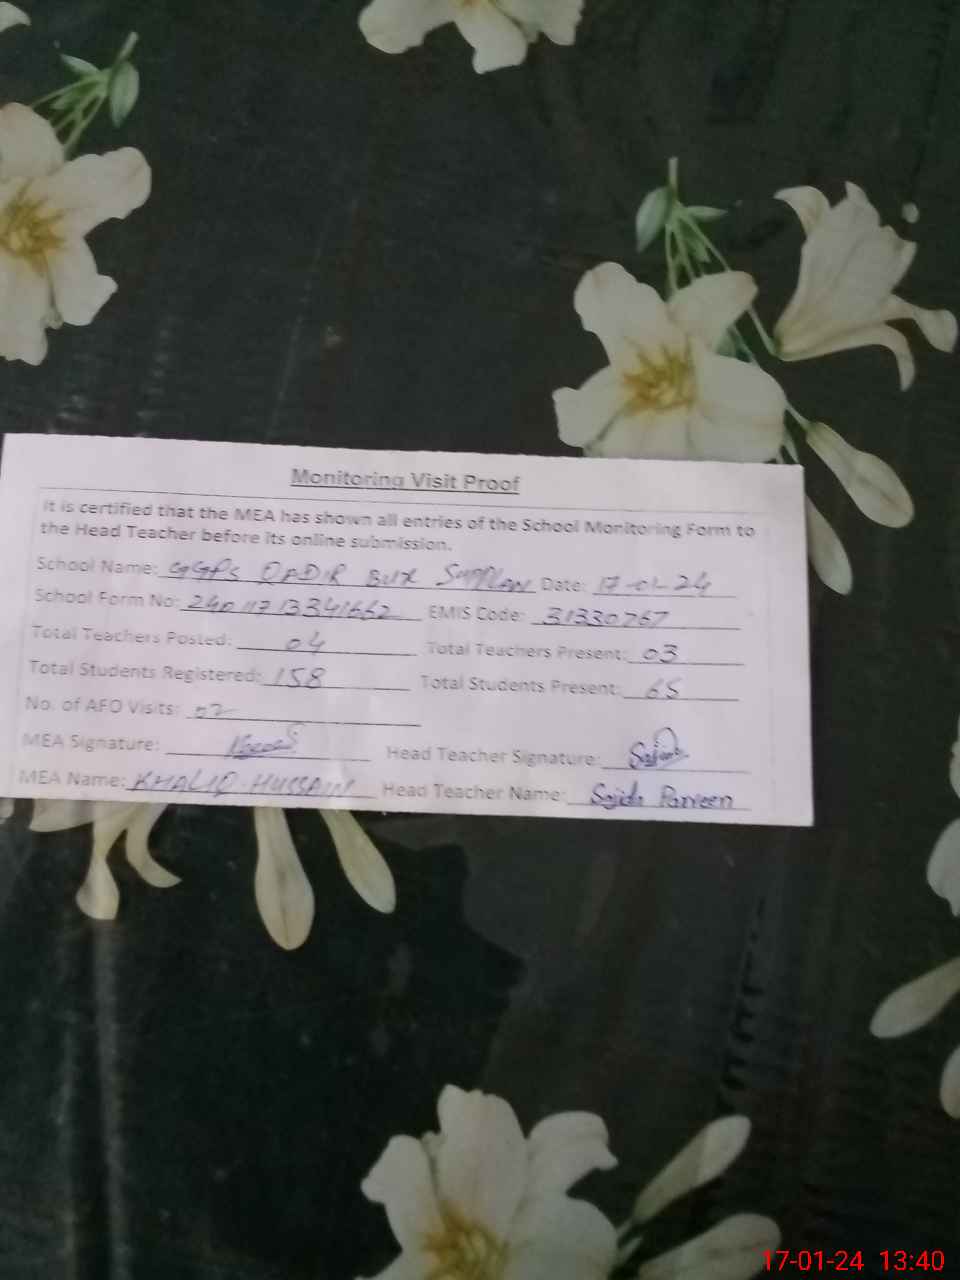 Monitoring Visit Proof
It is certified that the MEA has shown all entries of the School Monitoring Form to
the Head Teacher before its online submission.
School Name: GGPS BUX Date: 17-01-24
School Form No: EMIS Code: 31330767
Total Teachers Posted: 04 Total Teachers Present: 03
Total Students Registered: 158 Total Students Present: 65
No. of AFO Visits: 02
MEA Signature: Head Teacher Signature: Sajida
MEA Name: KHALIQ HUSSAIN Head Teacher Name: Sajida Parveen
17-01-24 13:40